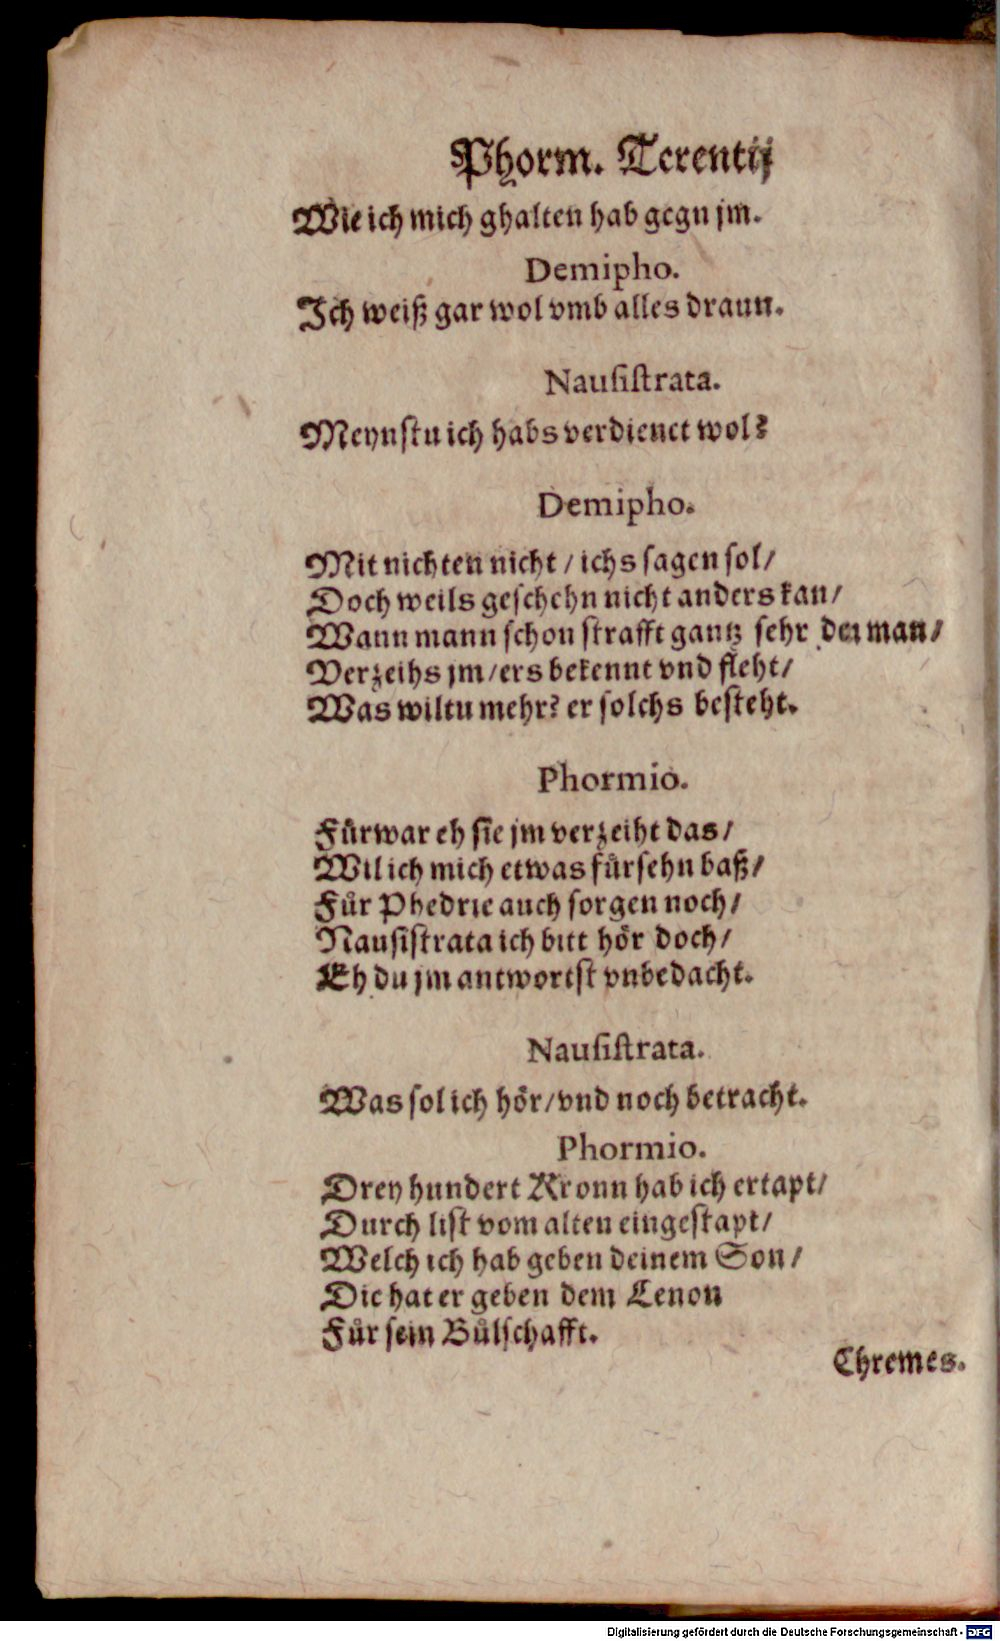 Phorm. Terentij
Wie ich mich ghalten hab gegn jm.
Demipho.
Ich weiß gar wol vmb alles draun.
Nausistrata.
Meynstu ich habs verdienet wol?
Demipho.
Mit nichten nicht / ichs sagen sol /
Doch weils geschehn nicht anders kan /
Wann mann schon strafft gantz sehr den man /
Verzeihs jm / ers bekennt vnd fleht /
Was wiltu mehr? er solchs besteht.
Phormio.
Fůrwar eh sie jm verzeiht das /
Wil ich mich etwas fůrsehn baß /
Fůr Phedrie auch sorgen noch /
Nausistrata ich bitt hőr doch /
Eh du jm antwortst vnbedacht.
Nausistrata.
Was sol ich hőr / vnd noch betracht.
Phormio.
Drey hundert Kronn hab ich ertapt /
Durch list vom alten eingestapt /
Welch ich hab geben deinem Son /
Die hat er geben dem Lenon
Fůr sein Bůlschafft.
Chremes.
Digitalisierung gefördert durch die Deutsche Forschungsgemeinschaft - DFG